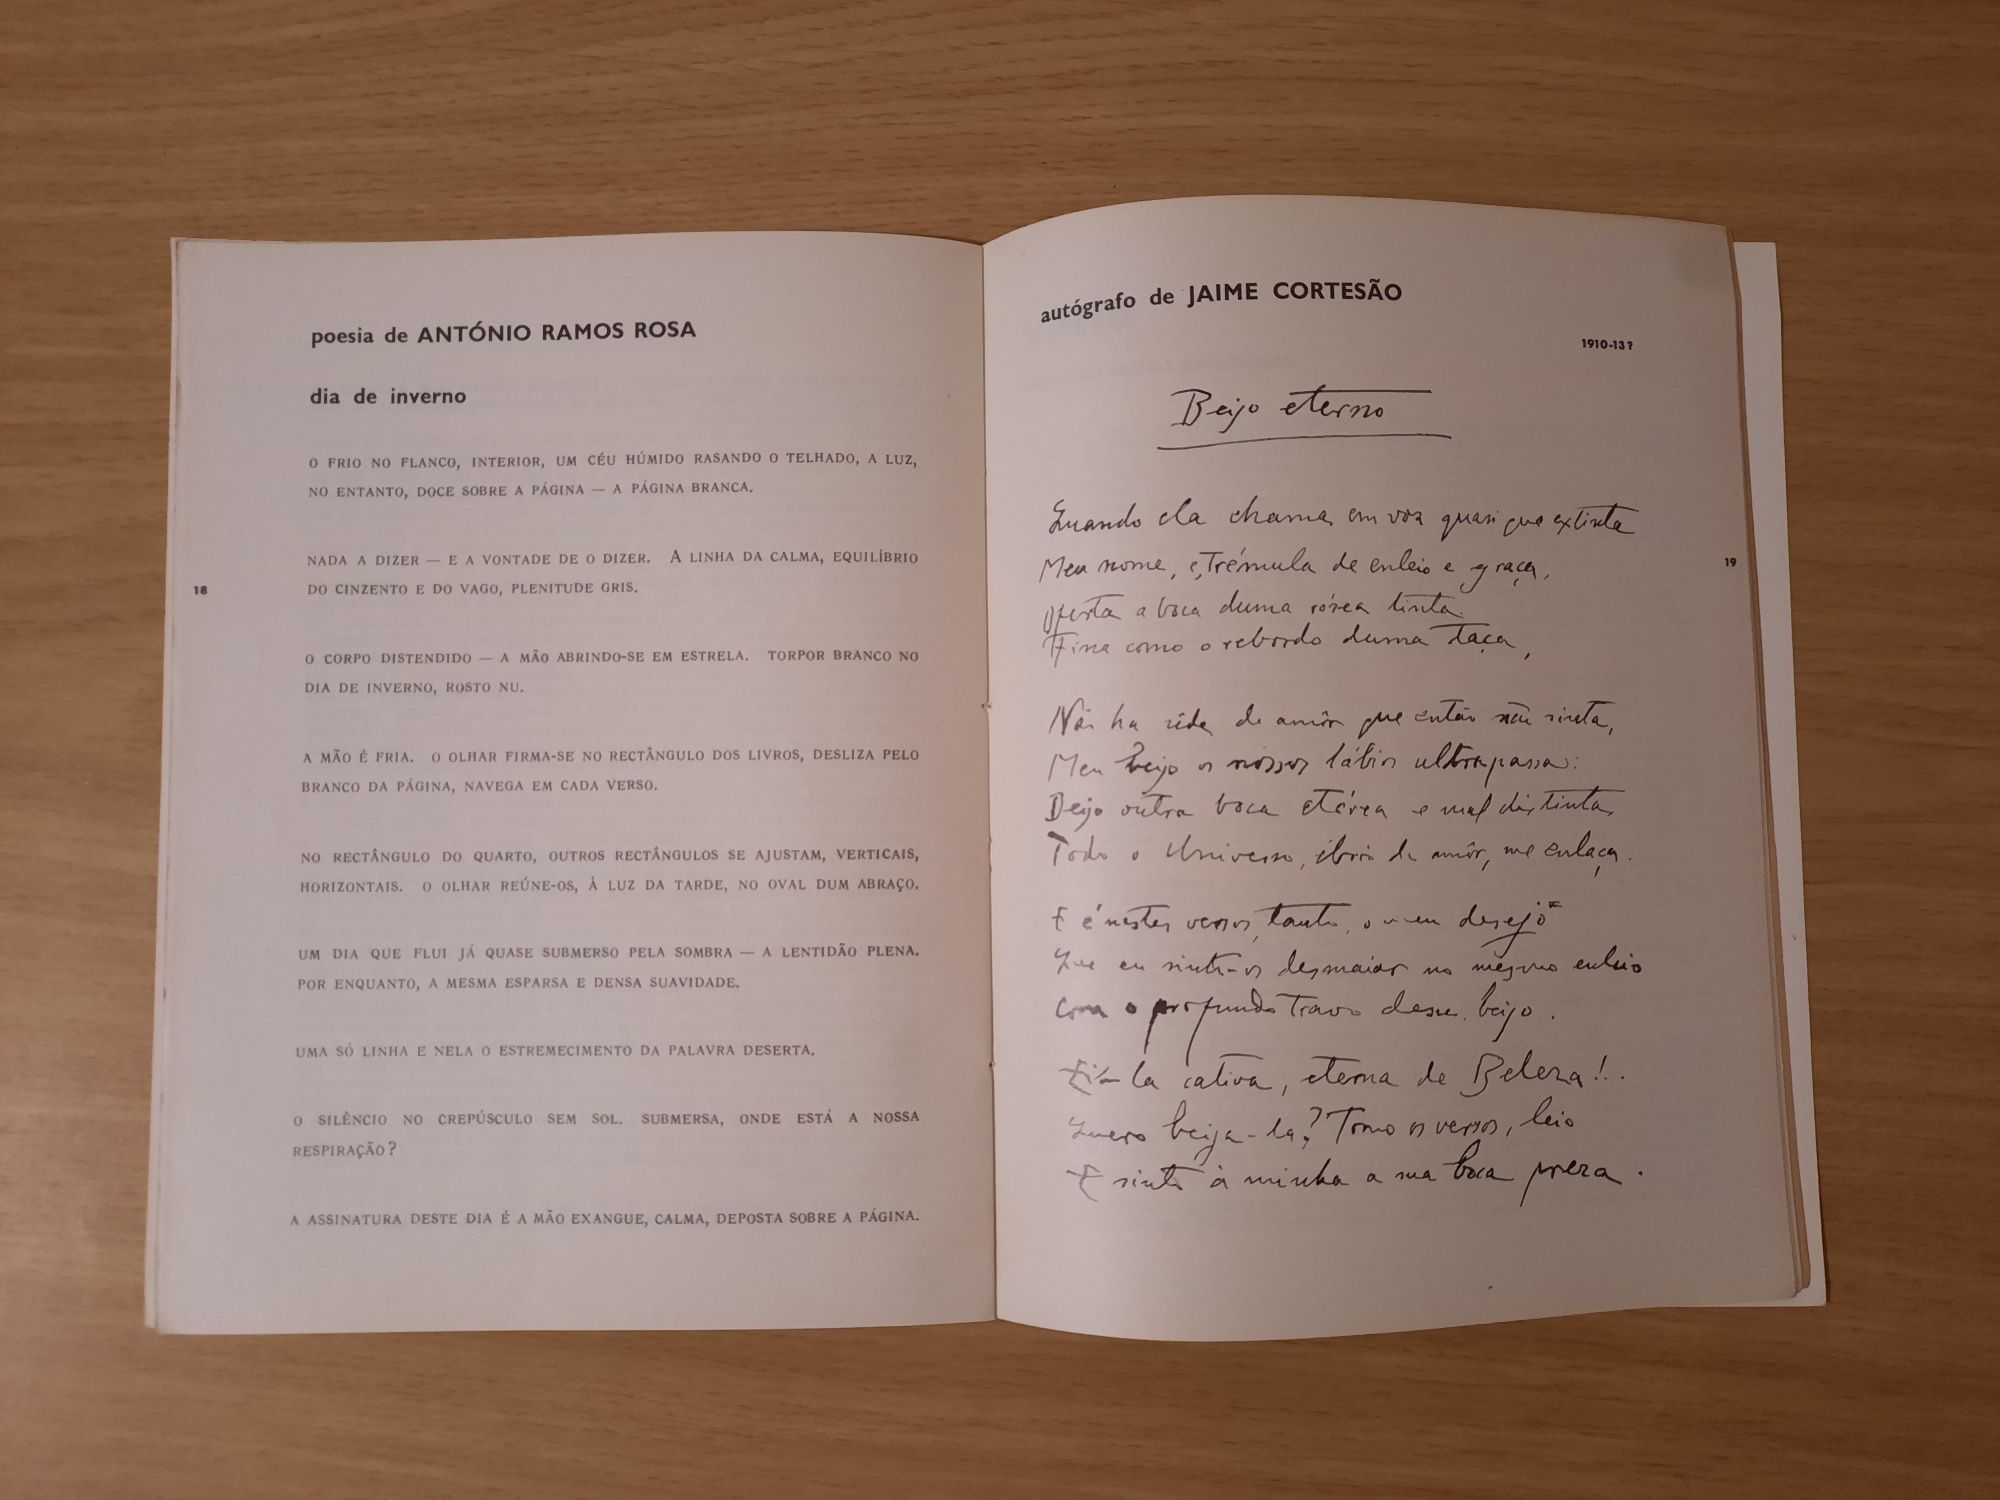 poesia de ANTÓNIO RAMOS ROSA
dia de inverno
O FRIO NO FLANCO, INTERIOR, UM CÉU HÚMIDO RASANDO O TELHADO, A LUZ,
NO ENTANTO, DOCE SOBRE A PÁGINA — A PÁGINA BRANCA.
NADA A DIZER — E A VONTADE DE O DIZER. A LINHA DA CALMA, EQUILÍBRIO
DO CINZENTO E DO VAGO, PLENITUDE GRIS.
18
O CORPO DISTENDIDO — A MÃO ABRINDO-SE EM ESTRELA. TORPOR BRANCO NO
DIA DE INVERNO, ROSTO NU.
A MÃO É FRIA. O OLHAR FIRMA-SE NO RECTÂNGULO DOS LIVROS, DESLIZA PELO
BRANCO DA PÁGINA, NAVEGA EM CADA VERSO.
NO RECTÂNGULO DO QUARTO, OUTROS RECTÂNGULOS SE AJUSTAM, VERTICAIS,
HORIZONTAIS. O OLHAR REÚNE-OS, À LUZ DA TARDE, NO OVAL DUM ABRAÇO.
UM DIA QUE FLUI JÁ QUASE SUBMERSO PELA SOMBRA — A LENTIDÃO PLENA.
POR ENQUANTO, A MESMA ESPARSA E DENSA SUAVIDADE.
UMA SÓ LINHA E NELA O ESTREMECIMENTO DA PALAVRA DESERTA.
O SILÊNCIO NO CREPÚSCULO SEM SOL. SUBMERSA, ONDE ESTÁ A NOSSA
RESPIRAÇÃO?
A ASSINATURA DESTE DIA É A MÃO EXANGUE, CALMA, DEPOSTA SOBRE A PÁGINA.
autógrafo de JAIME CORTESÃO
1910-13?
Beijo eterno
Quando ela chama em voz quasi que extinta
Meu nome, e, trémula de enleio e graça,
Oferta a boca duma rósea tinta
Fina como o rebordo duma taça,
19
Não ha sêde de amôr que então não sinta,
Meu beijo os nossos lábios ultrapassa:
Beijo outra boca etérea e mal distinta
Todo o Universo, ébrio de amôr, me enlaça.
E é nestes versos, tanto, o meu desejo
Que eu sinto-os desmaiar no mesmo enleio
Com o profundo travo desse beijo.
-la cativa, eterna de Beleza!..
Quero beija-la? Tomo os versos, leio
E sinto á minha a sua boca preza.